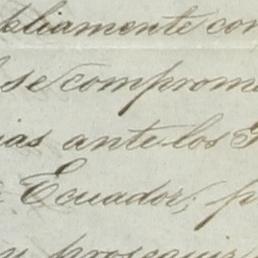 pliamente con
se comprom
ias ante los
Ecuador, p
proseguir